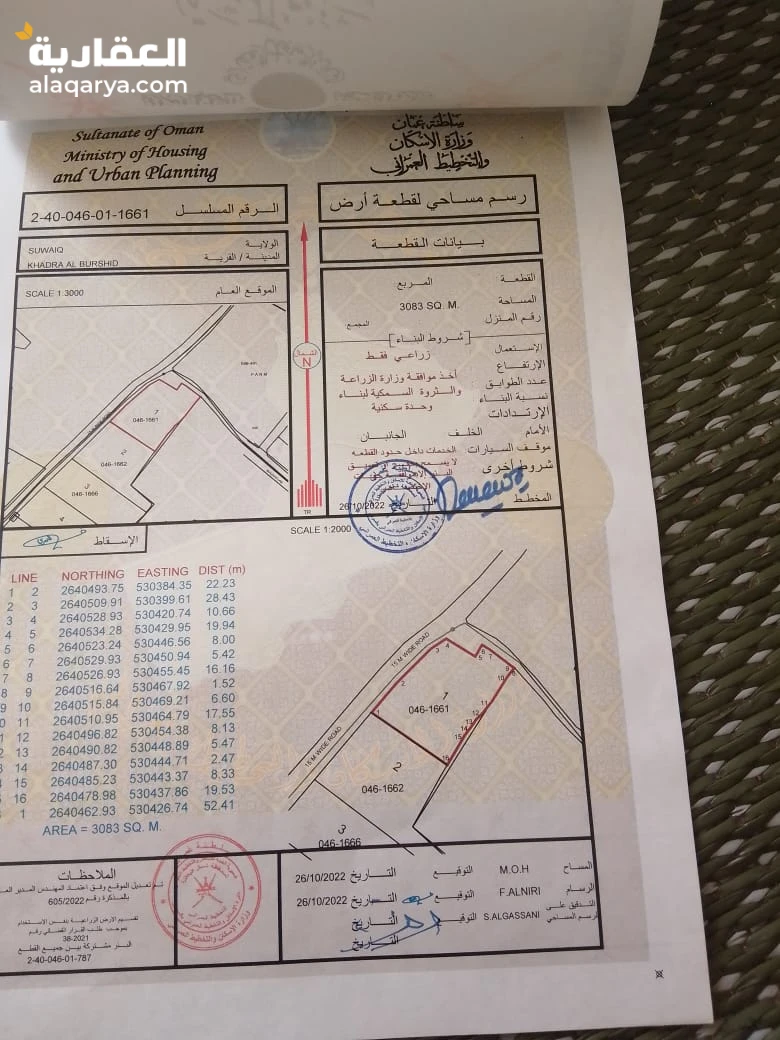 العقارية
alaqarya.com
Sultanate of Oman
Ministry of Housing
and Urban Planning
سلطنة عمان
وزارة الاسكان
والتخطيط العمراني
2-40-046-01-1661 الرقم المسلسل
رسم مساحي لقطعة أرض
SUWAIQ الولاية
KHADRA AL BURSHID المدينة / القرية
بيانات القطعة
SCALE 1:3000 الموقع العام
046-1661
046-1662
046-1666
الشمال
N
TR
القطعة : المربع
المساحة 3083 SQ. M.
رقم المنزل المجمع
[شروط البناء]
الإستعمال زراعي فقط
الإرتفاع
عدد الطوابق أخذ موافقة وزارة الزراعة
نسبة البناء والثروة السمكية لبناء
وحدة سكنية
الإرتدادات
الأمام الخلف الجانبان
موقف السيارات الخدمات داخل حدود القطعه
شروط أخرى
المخطط التاريخ 26/10/2022
Renewa
الإسقاط
SCALE 1:2000
LINE NORTHING EASTING DIST (m)
1 2 2640493.75 530384.35 22.23
2 3 2640509.91 530399.61 28.43
3 4 2640528.93 530420.74 10.66
4 5 2640534.28 530429.95 19.94
5 6 2640523.24 530446.56 8.00
6 7 2640529.93 530450.94 5.42
7 8 2640526.93 530455.45 16.16
8 9 2640516.64 530467.92 1.52
9 10 2640515.84 530469.21 6.60
0 11 2640510.95 530464.79 17.55
1 12 2640496.82 530454.38 8.13
2 13 2640490.82 530448.89 5.47
3 14 2640487.30 530444.71 2.47
15 2640485.23 530443.37 8.33
16 2640478.98 530437.86 19.53
1 2640462.93 530426.74 52.41
AREA = 3083 SQ. M.
15 M WIDE ROAD
15 M WIDE ROAD
1
046-1661
2
046-1662
٣
046-1666
الملاحظات
تم تعديل الموقع وفق اعتماد المهندس المدير
بالمذكرة رقم 605/2022
تقسيم الارض الزراعية بنفس الاستخدام
بموجب طلب القرار القضائي رقم
38-2021
البئر مشتركة بين جميع القطع
2-40-046-01-787
المساح M.O.H التوقيع التاريخ 26/10/2022
الرسام F.ALNIRI التوقيع التاريخ 26/10/2022
التدقيق على
الرسم المساحي S.ALGASSANI التوقيع التاريخ
التاريخ